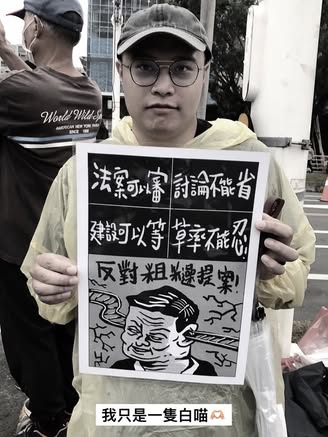 World Wild
AMERICAN NEW YORK
SINCE 1986
法案可以審 討論不能省
建設可以等 草率不能忍
反對粗糙提案!
我只是一隻白喵🫶🏻